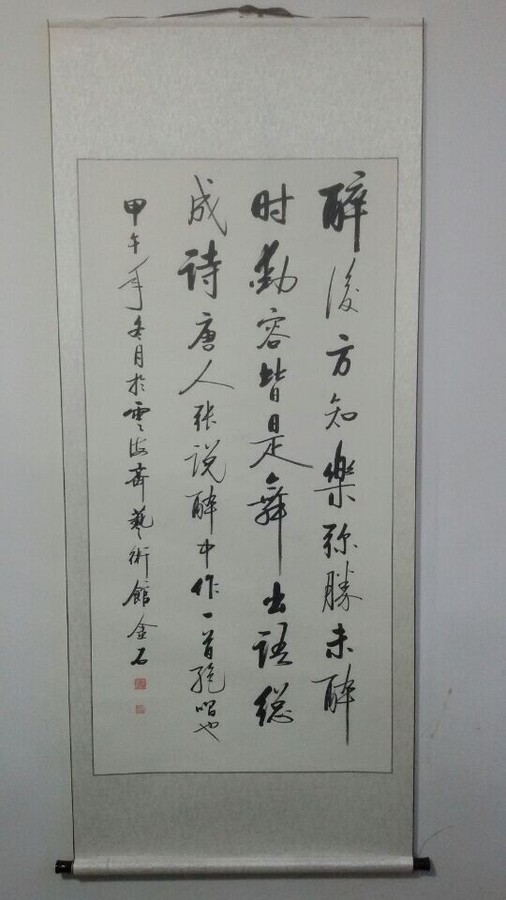 醉後方知樂弥勝未醉
时動容皆是舞出語總
成诗唐人张说醉中作一首绝唱也
甲午年冬月於雲海斋藝術館金石